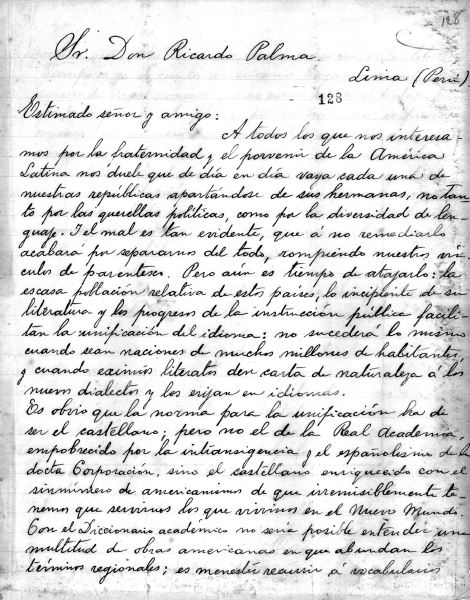 128
Sr. Don Ricardo Palma.
Lima (Perú)
128
Estimado señor y amigo:
A todos los que nos interesa-
mos por la fraternidad y el porvenir de la América
Latina nos duele que de día en día vaya cada una de
nuestras repúblicas apartándose de sus hermanas, no tan-
to por las querellas políticas, como por la diversidad de len-
guaje. I el mal es tan evidente, que á no remediarlo
acabará por separarnos del todo, rompiendo nuestros vín-
culos de parentesco. Pero aún es tiempo de atajarlo: la
escasa población relativa de estos países, lo incipiente de su
literatura y los progresos de la instrucción pública facili-
tan la unificación del idioma: no sucederá lo mismo
cuando sean naciones de muchos millones de habitantes,
y cuando eximios literatos den carta de naturaleza á los
nuevos dialectos y los erijan en idiomas.
Es obvio que la norma para la unificación ha de
ser el castellano: pero no el de la Real Academia,
empobrecido por la intransigencia y el españolismo de la
docta Corporación, sino el castellano enriquecido con el
sinnúmero de americanismos de que irremisiblemente te-
nemos que servirnos los que vivimos en el Nuevo Mundo.
Con el Diccionario académico no sería posible entender una
multitud de obras americanas en que abundan los
términos regionales; es menester recurrir á vocabularios